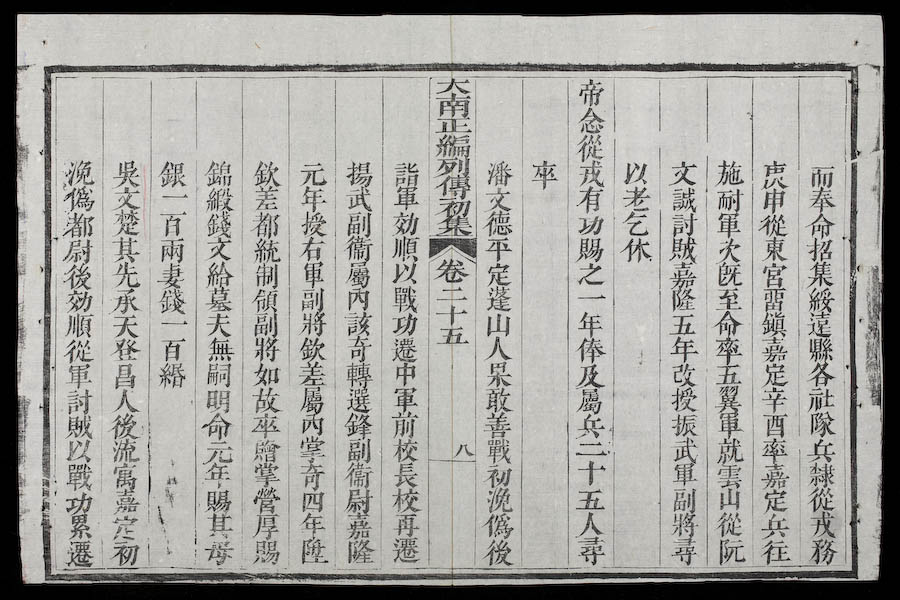 而奉命招集綏遠縣各社隊兵隸從戎務
庚申從東宮畱鎮嘉定辛酉率嘉定兵徃
施耐軍次旣至命率五翼軍就雲山從阮
文誠討賊嘉隆五年改授振武軍副將尋
以老乞休
帝念從戎有功賜之一年俸及屬兵二十五人尋
卒
潘文德平定蓬山人果敢善戰初浼僞後
大南正編列傳初集 卷二十五 八
詣軍効順以戰功遷中軍前校長校再遷
揚武副衞屬內該奇轉選鋒副衞尉嘉隆
元年授右軍副將欽差屬內掌奇四年陞
欽差都統制領副將如故卒贈掌營厚賜
錦緞錢文給墓夫無嗣明命元年賜其母
銀一百兩妻錢一百緡
吳文楚其先承天登昌人後流寓嘉定初
浼僞爲都尉後効順從軍討賊以戰功累遷